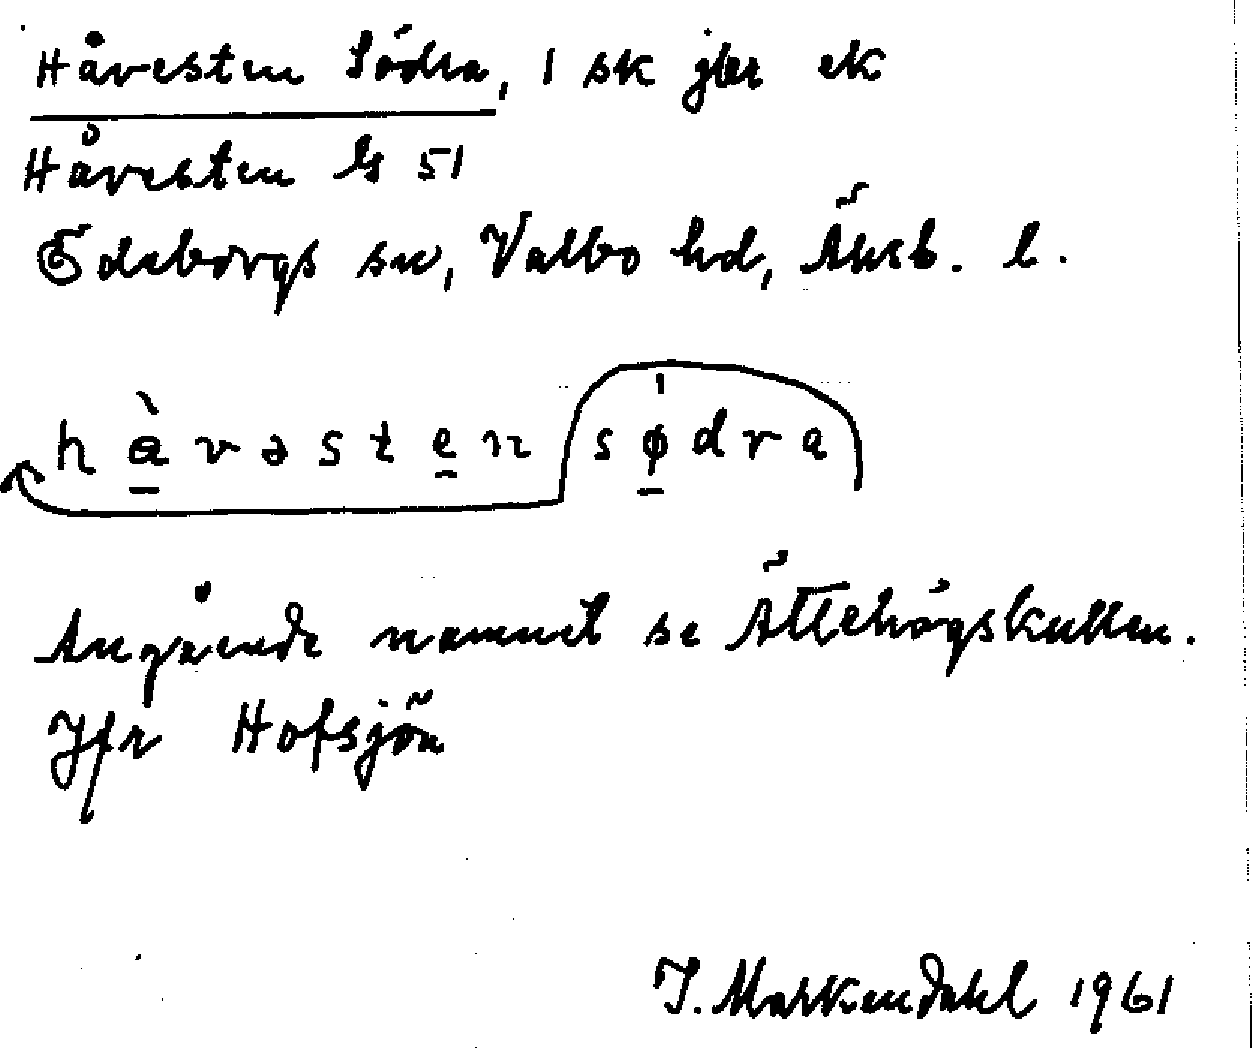 Håvesten Södra, 1 sk jber ek
Håvesten G 51
Ödeborgs sn, Valbo hd, Älvsb. l.
hà̱vəste̱n sø̱dra
Angående namnet se Ättehögskullen.
Jfr Hofsjön
J. Markendahl 1961